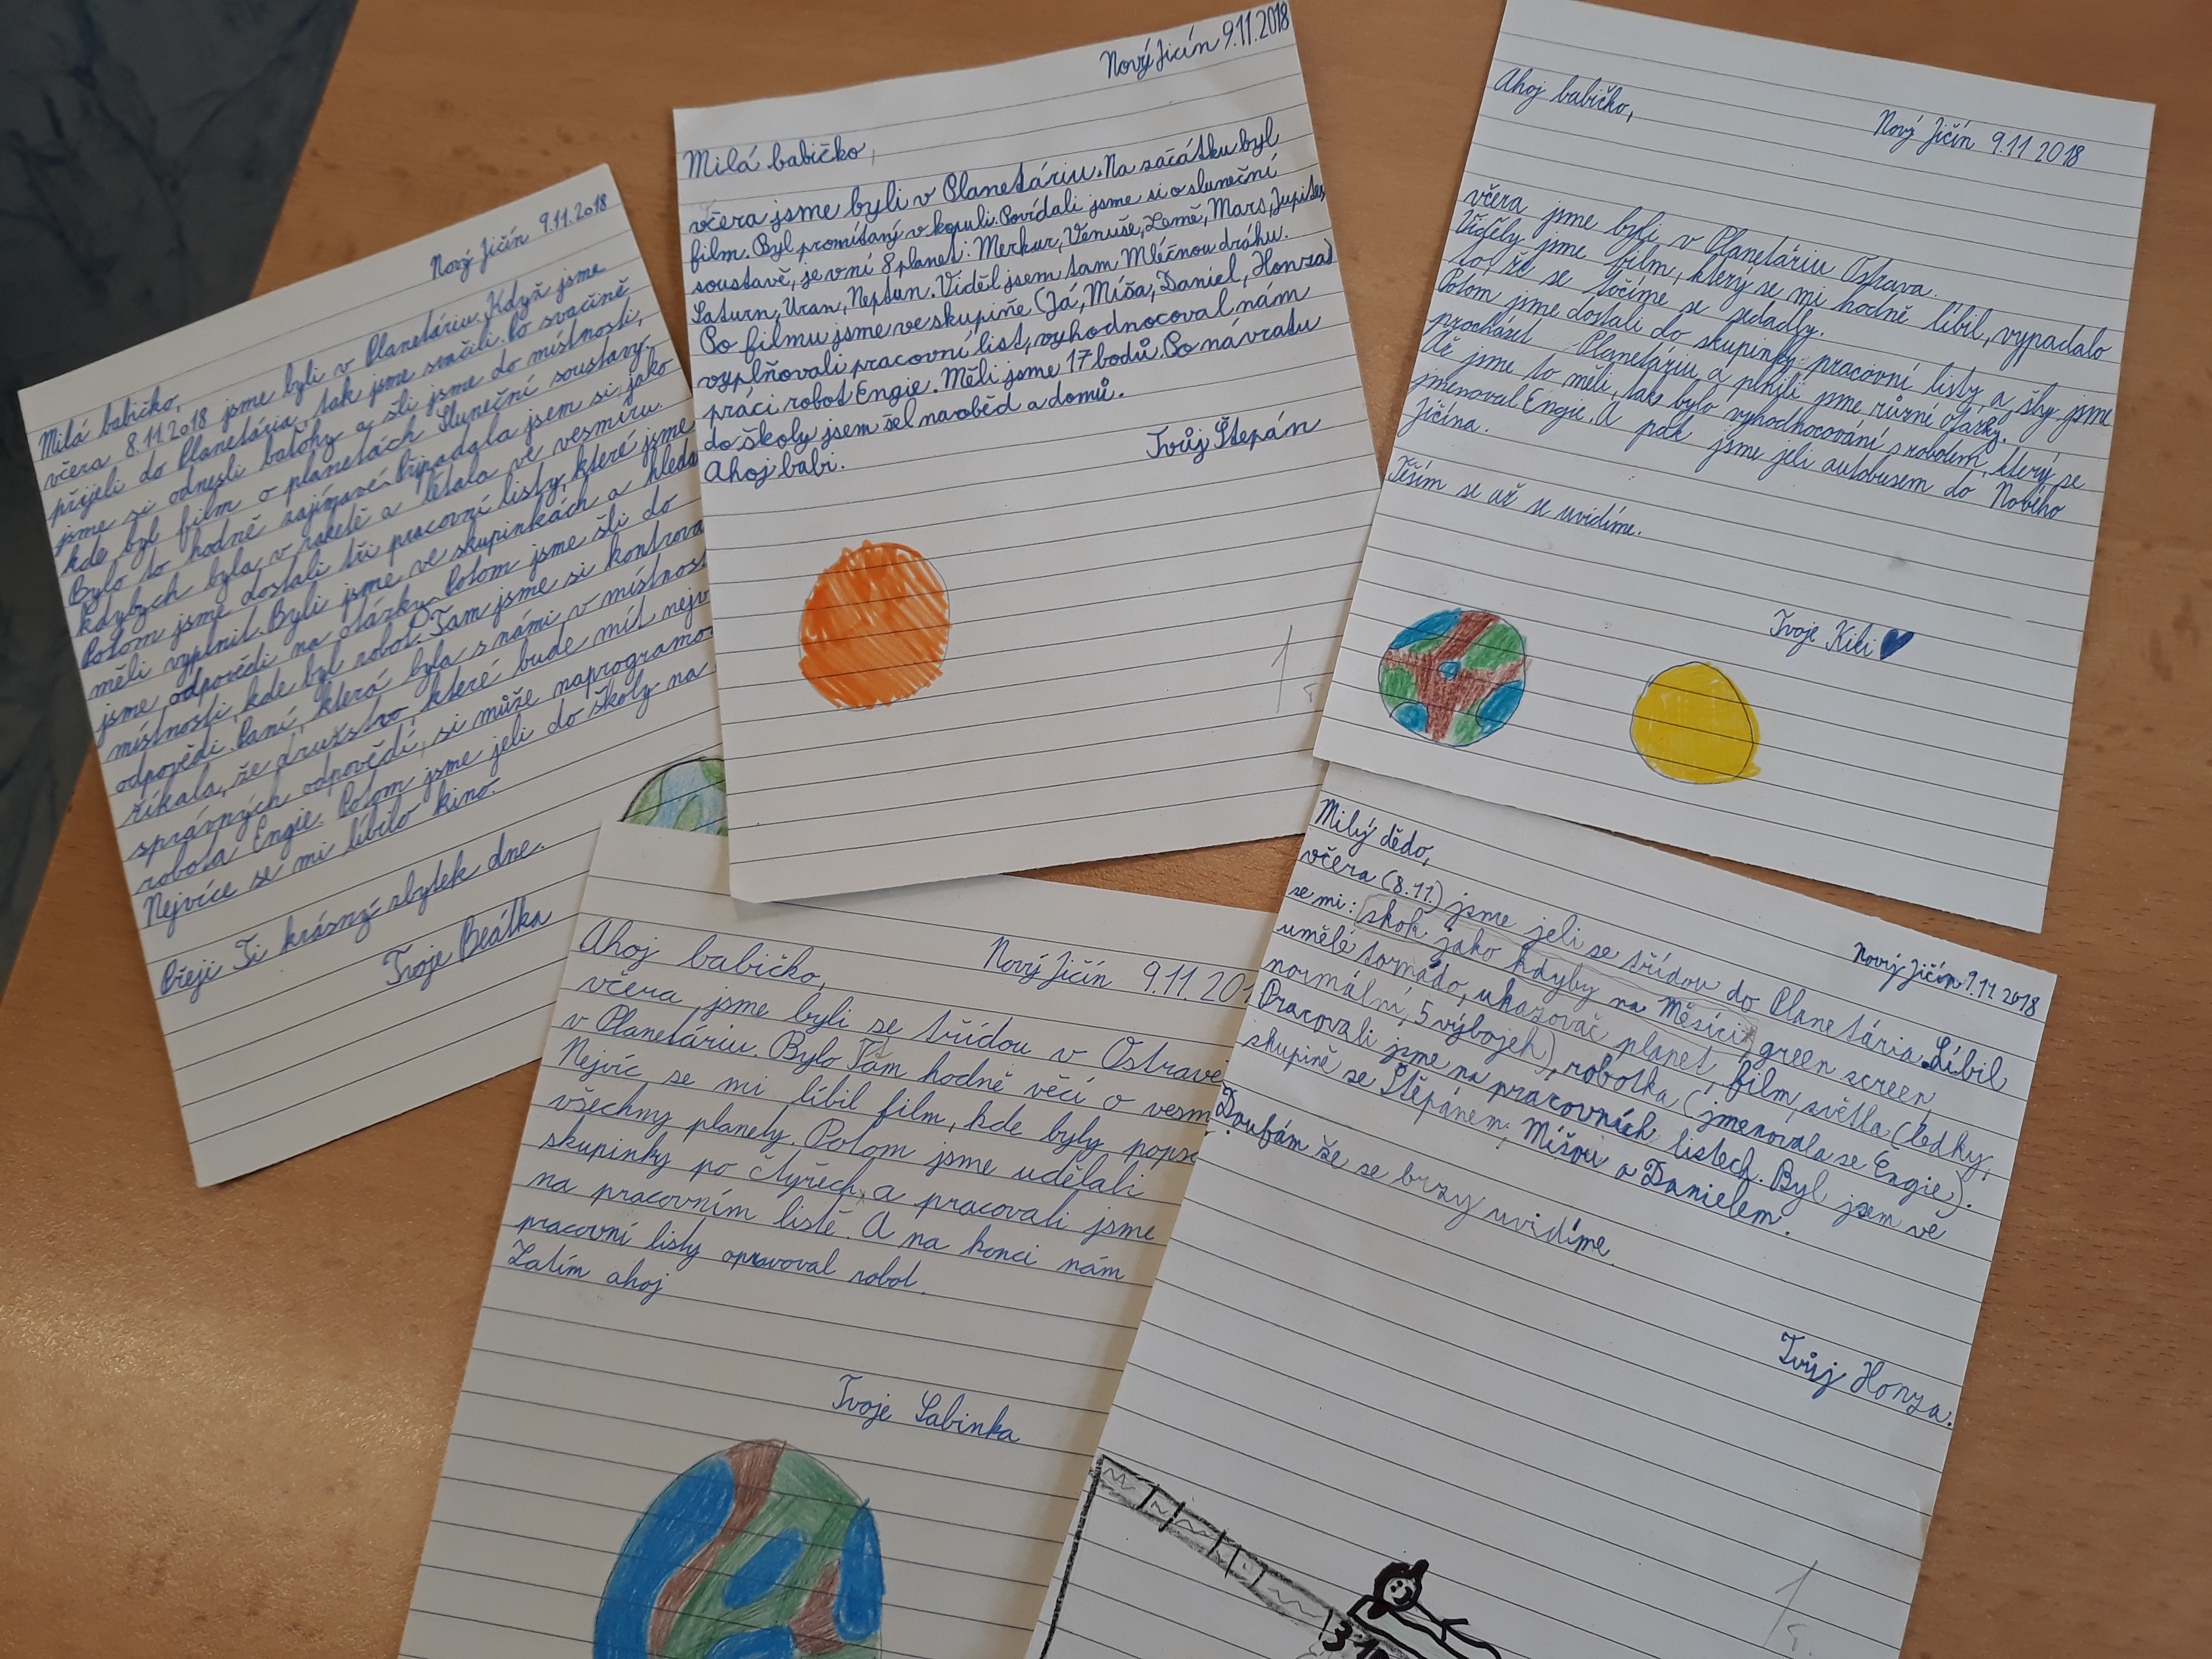 Nový Jičín 9.11.2018
Milá babičko,
včera 8.11.2018 jsme byli v Planetáriu. Když jsme
přijeli do Planetária, tak jsme svačili. Po svačině
jsme si odnesli batohy a šli jsme do místnosti,
kde byl film o planetách Sluneční soustavy.
Bylo to hodně zajímavé. Připadala jsem si jako
kdybych byla v raketě a létala ve vesmíru.
Potom jsme dostali tři pracovní listy, které jsme
měli vyplnit. Byli jsme ve skupinkách a hleda
jsme odpovědi na otázky. Potom jsme šli do
místnosti, kde byl robot. Tam jsme si kontrova
odpovědi. Paní, která byla s námi v místnost
říkala, že družstvo, které bude mít nejv
správných odpovědí, si může naprogramo
robota Engie. Potom jsme jeli do školy na
Nejvíce se mi líbilo kino.
Přeji Ti krásný zbytek dne.
Tvoje Beátka
Nový Jičín 9.11.2018
Milá babičko,
včera jsme byli v Planetáriu. Na začátku byl
film. Byl promítaný v kopuli. Povídali jsme si o sluneční
soustavě, je v ní 8 planet: Merkur, Venuše, Země, Mars, Jupiter,
Saturn, Uran, Neptun. Viděl jsem tam Mléčnou dráhu.
Po filmu jsme ve skupině (Já, Míša, Daniel, Honza)
vyplňovali pracovní list, vyhodnocoval nám
práci robot Engie. Měli jsme 17 bodů. Po návratu
do školy jsem šel na oběd a domů.
Ahoj babi.
Tvůj Štepán
1
Ahoj babičko,
Nový Jičín 9.11 2018
včera jsme byli v Planetáriu Ostrava.
Viděly jsme film, který se mi hodně líbil, vypadalo
to, že se točíme se sedadly.
Potom jsme dostali do skupinky pracovní listy a šly jsme
procházet Planetáriu a plnili jsme různé otázky.
Až jsme to měli, tak bylo vyhodnocování s robotem, který se
jmenoval Engie. A pak jsme jeli autobusem do Nového
Jičína.
Těším se až se uvidíme.
Tvoje Kiki
Ahoj babičko,
Nový Jičín 9.11. 20
včera jsme byli se třídou v Ostravě
v Planetáriu. Bylo Tam hodně věcí o vesm
Nejvíc se mi líbil film, kde byly pops
všechny planety. Potom jsme udělali
skupinky po čtyřech, a pracovali jsme
na pracovním listě. A na konci nám
pracovní listy opravoval robot.
Zatím ahoj
Tvoje Sabinka
Milý dědo,
Nový Jičín 9.11.2018
včera (8.11.) jsme jeli se třídou do Planetária. Líbil
se mi: skok jako kdyby na Měsíci, green screen,
umělé tornádo, ukazovač planet, film, světla (ledky,
normální, 5 výbojek), robotka (jmenovala se Engie).
Pracovali jsme na pracovních listech. Byl jsem ve
skupině se Štěpánem, Míšou a Danielem.
Doufám že se brzy uvidíme.
Tvůj Honza.
1